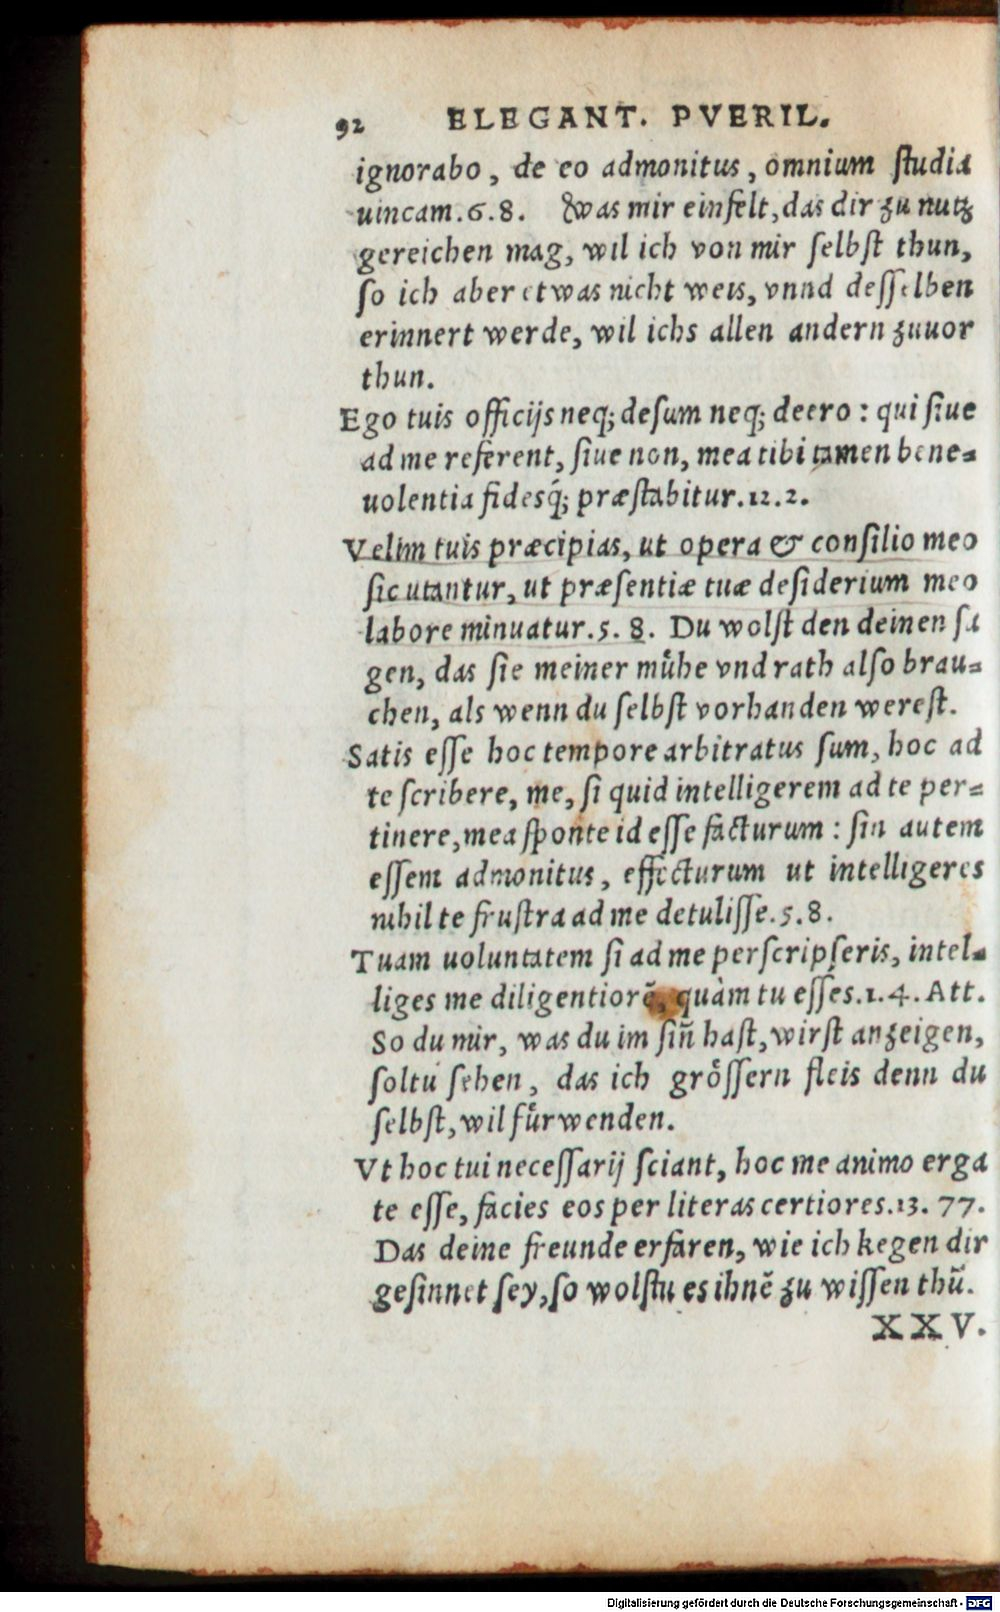 92 ELEGANT. PVERIL.
ignorabo, de eo admonitus, omnium ſtudia
uincam.6.8. Was mir einfelt, das dir zu nutz
gereichen mag, wil ich von mir ſelbſt thun,
ſo ich aber etwas nicht weis, vnnd deſſelben
erinnert werde, wil ichs allen andern zuuor
thun.
Ego tuis officijs neq; deſum neq; deero : qui ſiue
ad me referent, ſiue non, mea tibi tamen bene=
uolentia fidesq́; præſtabitur.12.2.
Velim tuis præcipias, ut opera & conſilio meo
ſic utantur, ut præſentiæ tuæ deſiderium meo
labore minuatur.5. 8. Du wolſt den deinen ſa
gen, das ſie meiner můhe vnd rath alſo brau=
chen, als wenn du ſelbſt vorhanden wereſt.
Satis eſſe hoc tempore arbitratus ſum, hoc ad
te ſcribere, me, ſi quid intelligerem ad te per=
tinere, mea ſponte id eſſe facturum : ſin autem
eſſem admonitus, effecturum ut intelligeres
nihil te fruſtra ad me detuliſſe.5.8.
Tuam uoluntatem ſi ad me perſcripſeris, intel=
liges me diligentiorē, quàm tu eſſes.1.4. Att.
So du mir, was du im ſiñ haſt, wirſt anzeigen,
ſoltu ſehen, das ich grôſſern fleis denn du
ſelbſt, wil fůrwenden.
Vt hoc tui neceſſarij ſciant, hoc me animo erga
te eſſe, facies eos per literas certiores.13. 77.
Das deine freunde erfaren, wie ich kegen dir
geſinnet ſey, ſo wolſtu es ihnē zu wiſſen thū.
XXV.
Digitalisierung gefördert durch die Deutsche Forschungsgemeinschaft - DFG